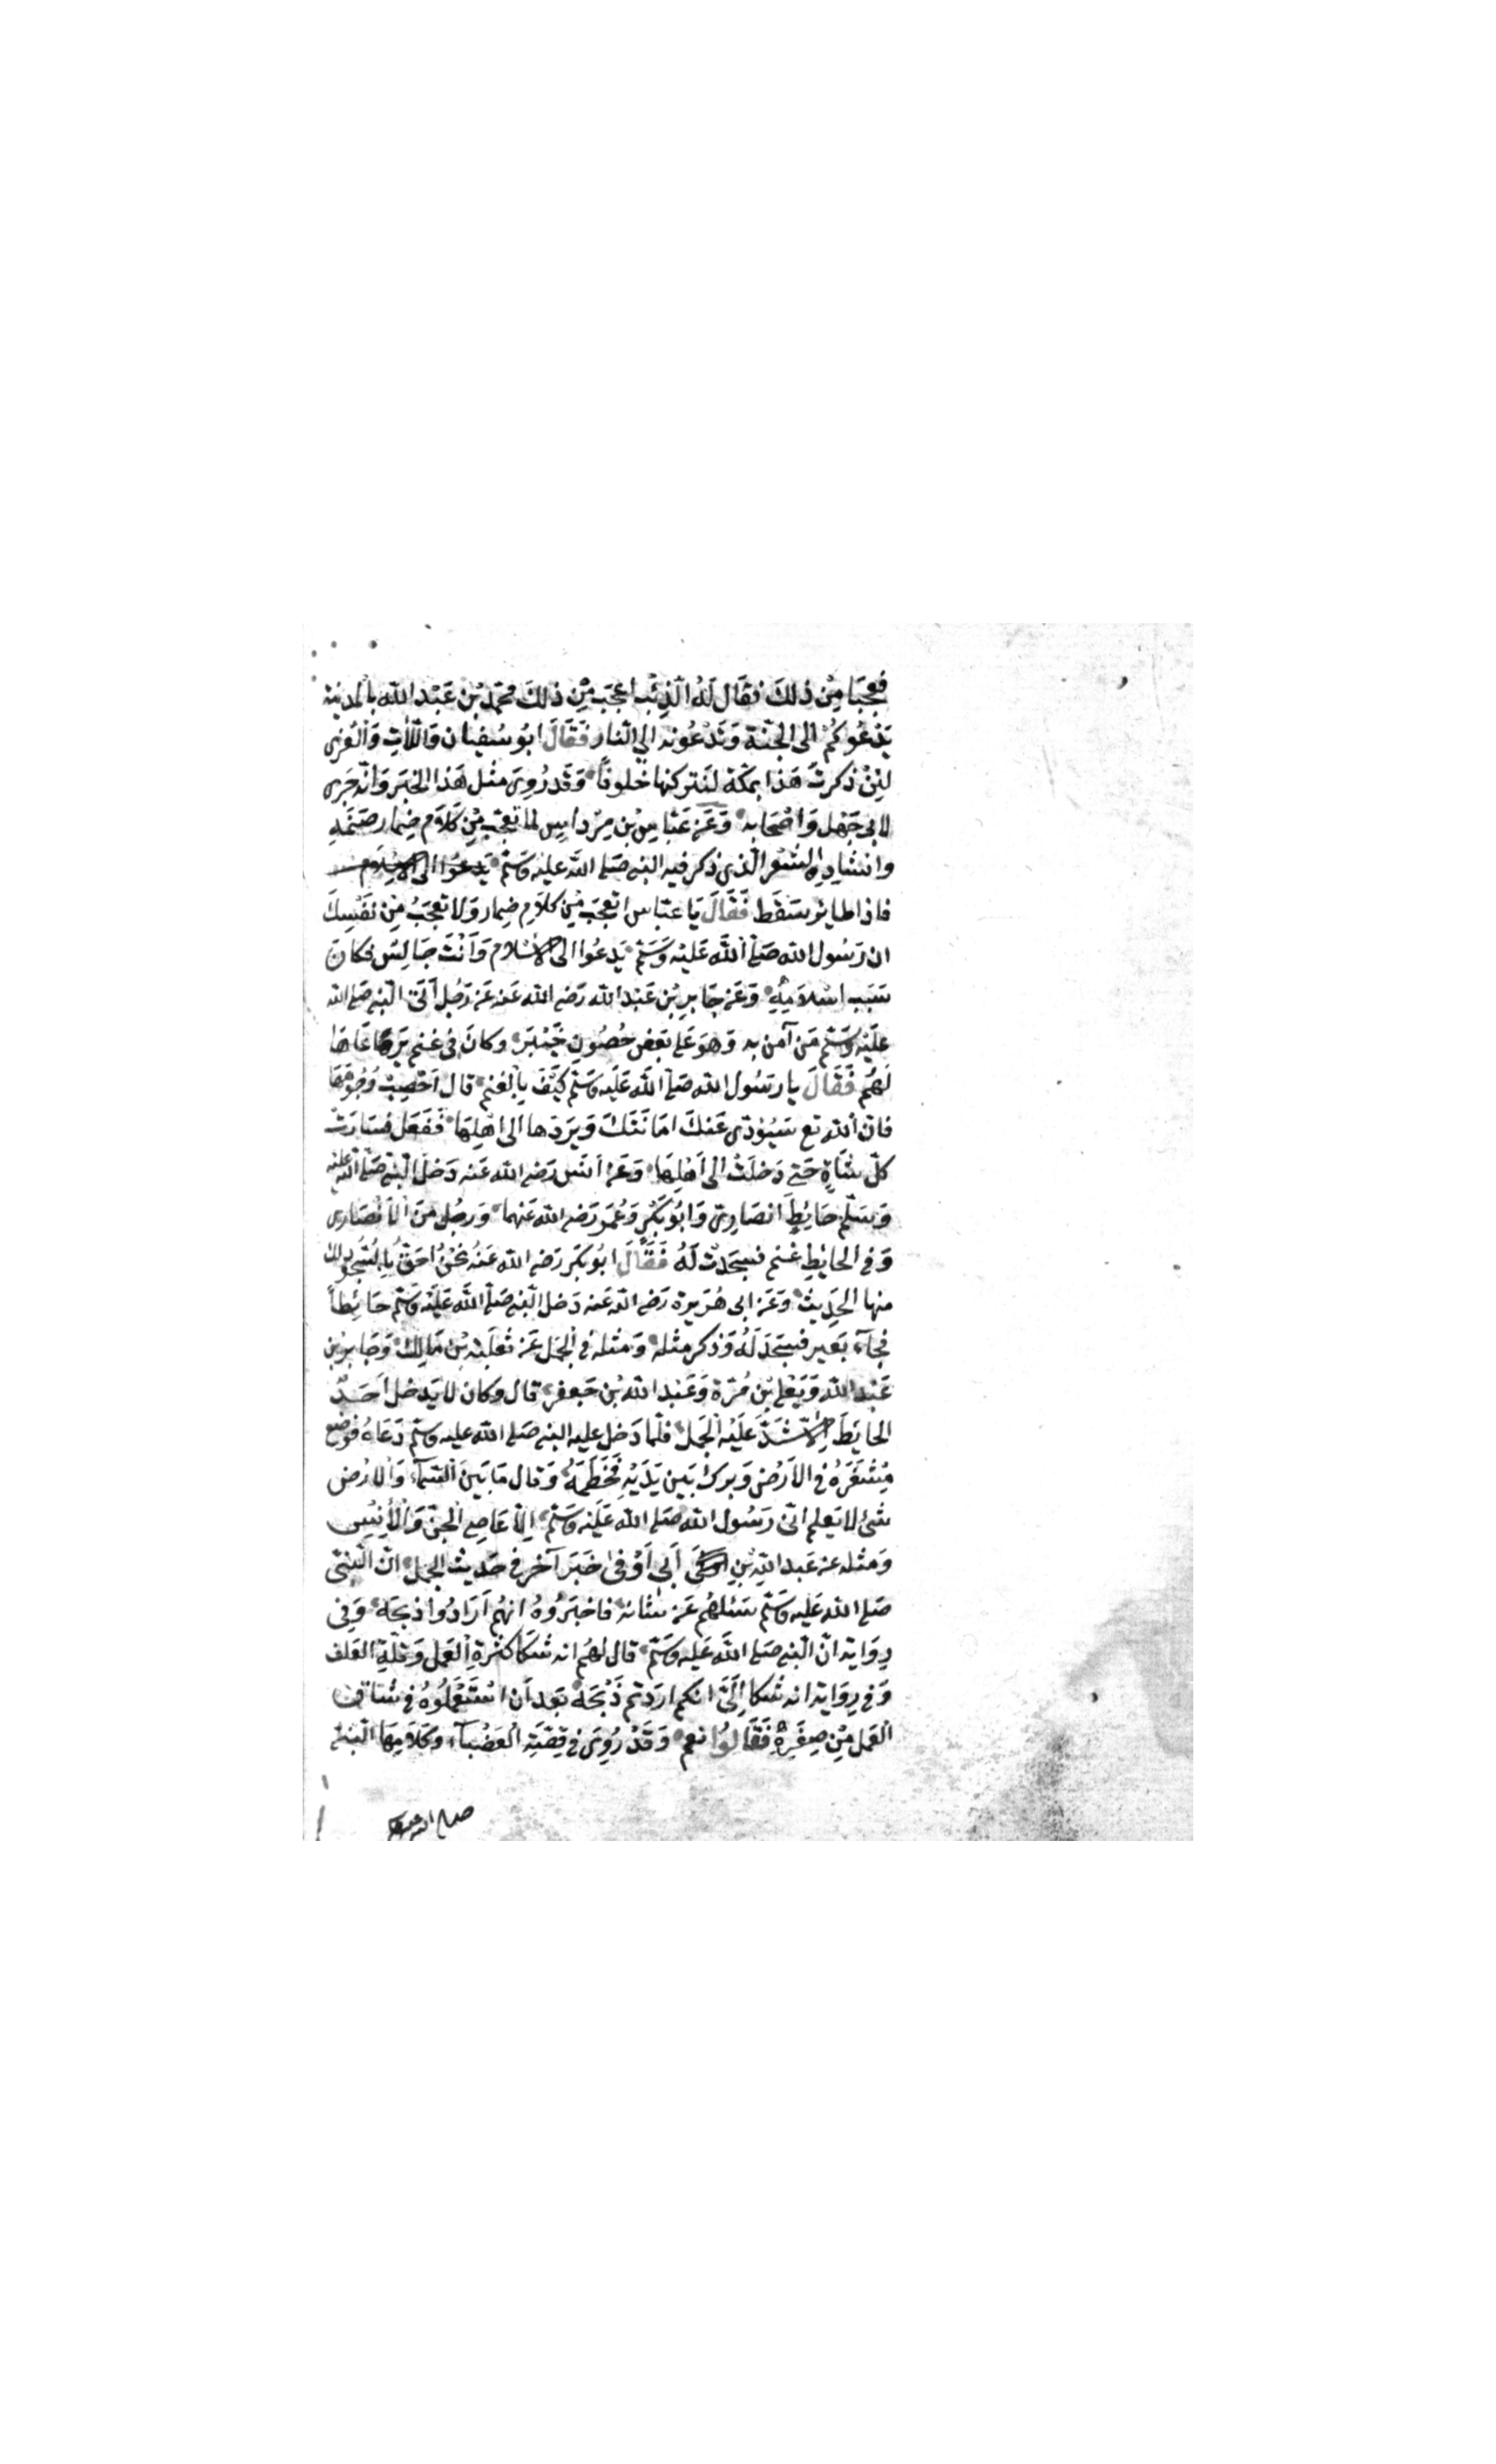 فعجبا مِن ذلك فقال لهُ الذئب اعجب مِن ذلكَ محمّد بْن عَبْد الله بالمدينة
يَدْعُوكُمْ الى الجنّة وَتَدْعُونه الى النار فَقَالَ ابوُ سُفيان وَاللّاتِ وَالعُزى
لئِنْ ذكرتَ هَذا بمكّة لنتركنها خُلوفًا وَقد رُوِىَ مثل هَذا الخبَر وَانّه جَرى
لابى جَهْل وَاصْحَابه وَعَن عَبّاسِ بْن مِرْداسٍ لما تعجّب مِن كَلَام ضِمار صَنَمِهِ
وانشادِهِ الشعْر الّذى ذكر فيه النبى صَلى اللّه عليْه وَسَلّم يَدعُوا الى الاِسْلام
فاذا طائر سَقَط فَقَالَ يَا عبّاس اتعجَب مِن كلَامِ ضِمار وَلا تعجَبُ مِن نفْسِكَ
ان رَسُول الله صَلى اللّه عَليْه وَسَلّم يَدعُوا الى الاسْلام وَاَنْتَ جَالِسٌ فكانَ
سَبَب اسْلامِهِ وَعَن جَابِرِ بْن عَبْد الله رَضى الله عَنه عَن رَجُل أتَىَ النّبى صَلى الله
عَليْه وَسَلّم مَن آمن به وَهوَ عَلى بَعْض حُصُونِ خَيْبَر وكانَ فى غنم يَرعَاها
لهُم فَقَالَ يا رسُول الله صَلى اللّه عَليْه وَسَلّم كيْفَ بِالغنَم قال احْصِبْ وُجُوهَهَا
فانّ اللّه تع سَيُؤدّى عَنكَ امَانتَكَ وَيَردّها الى اهْلِهَا فَفَعَل فسَارَتْ
كلّ شَاةٍ حَتى دَخلتْ الى اَهْلِهَا وَعَن انَس رَضى الله عَنه دَخلَ النّبى صَلى اللّه عليه
وَسَلّم حَائِطَ انصَارِىّ وَابُو بَكْرٍ وَعُمَر رَضى الله عَنهما وَرجُل مِنَ الاَنْصَارى
وَفى الحائِطِ غنَم فسجَدتْ لَهُ فَقَالَ ابُو بَكر رَضى الله عَنْهُ نحْنُ احَقّ بِالسّجُودِ لك
منها الحَدِيث وَعَن ابى هُرَيرة رَضى الله عَنه دَخل النّبى صَلى اللّه عَليْه وَسَلّم حَائِطاً
فجآء بَعير فسجَدَ لَهُ وَذكر مثله وَمثله فى الجمل عَن ثعْلَبة بْن مَالِكٍ وَجَابر بْن
عَبْد الله وَيَعْلى بْن مُرّة وَعَبْد الله بْن جَعفر قال وكان لا يَدخل اَحَدٌ
الحائِطَ اِلّا شَدَّ عَليْه الجمَل فلمّا دَخل عليه النبى صَلى الله عليه وسَلّم دَعَاهُ فوَضع
مِشْفَرَهُ فى الاَرْض وَبرك بَين يَدَيْهِ فَخَطَمَهُ وَقال مَا بَينَ السّمآء وَالارْض
شئ لا يَعلم انّى رَسُول الله صَلى الله عَليْه وَسَلّم اِلّا عَاصِى الْجنّ وَالْأِنْسِ
وَمثله عن عَبد اللّه بْنِ اَبى اَوْفى خَبَر آخر فى حَديث الجمل انّ النّبىّ
صَلى الله عَليه وَسَلّم سَئلهُم عَن شانه فاخبَرُوهُ انهُم اَرَادُوا ذبحَهُ وَفى
رِوَاية انّ النّبى صَلى اللّه عَليه وَسَلّم قال لهُم انه شكَا كثْرةَ العَمل وَقلّةِ العَلف
وَفى رِوَاية انه شكا اِلَىّ انكم اردتم ذَبْحَهُ بَعد اَن اسْتَعْمَلتُمُوهُ فى شاقّ
العَمل مِن صِغَرِهِ فَقَالوُا نعم وَقدْ رُوِىَ فى قِصّةِ العَضْبآء وَكلَامِهَا النّبى
صلى الله عليه وسلم